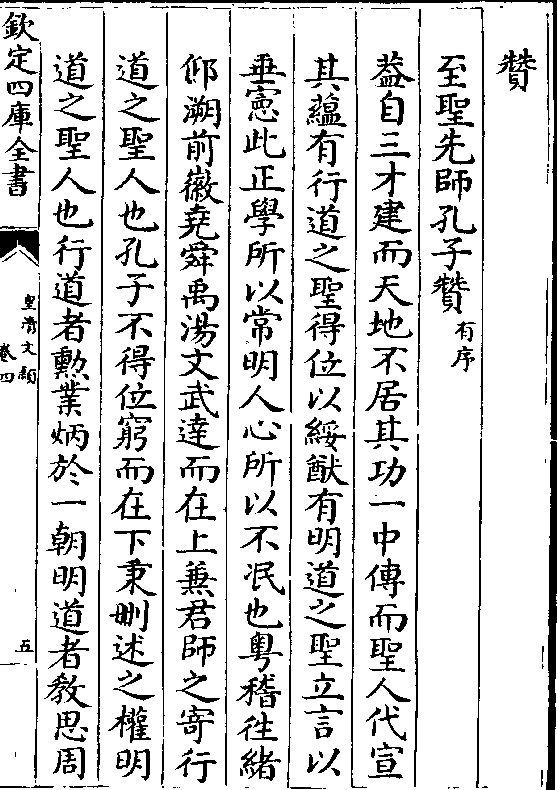 贊
至聖先師孔子贊有序
葢自三才建而天地不居其功一中傳而聖人代宣
其蘊有行道之聖得位以綏猷有明道之聖立言以
垂憲此正學所以常明人心所以不泯也粤稽徃緒
仰溯前徽堯舜禹湯文武達而在上兼君師之寄行
道之聖人也孔子不得位窮而在下秉刪述之權明
道之聖人也行道者勲業炳於一朝明道者教思周
欽定四庫全書
皇清文穎
卷四
五